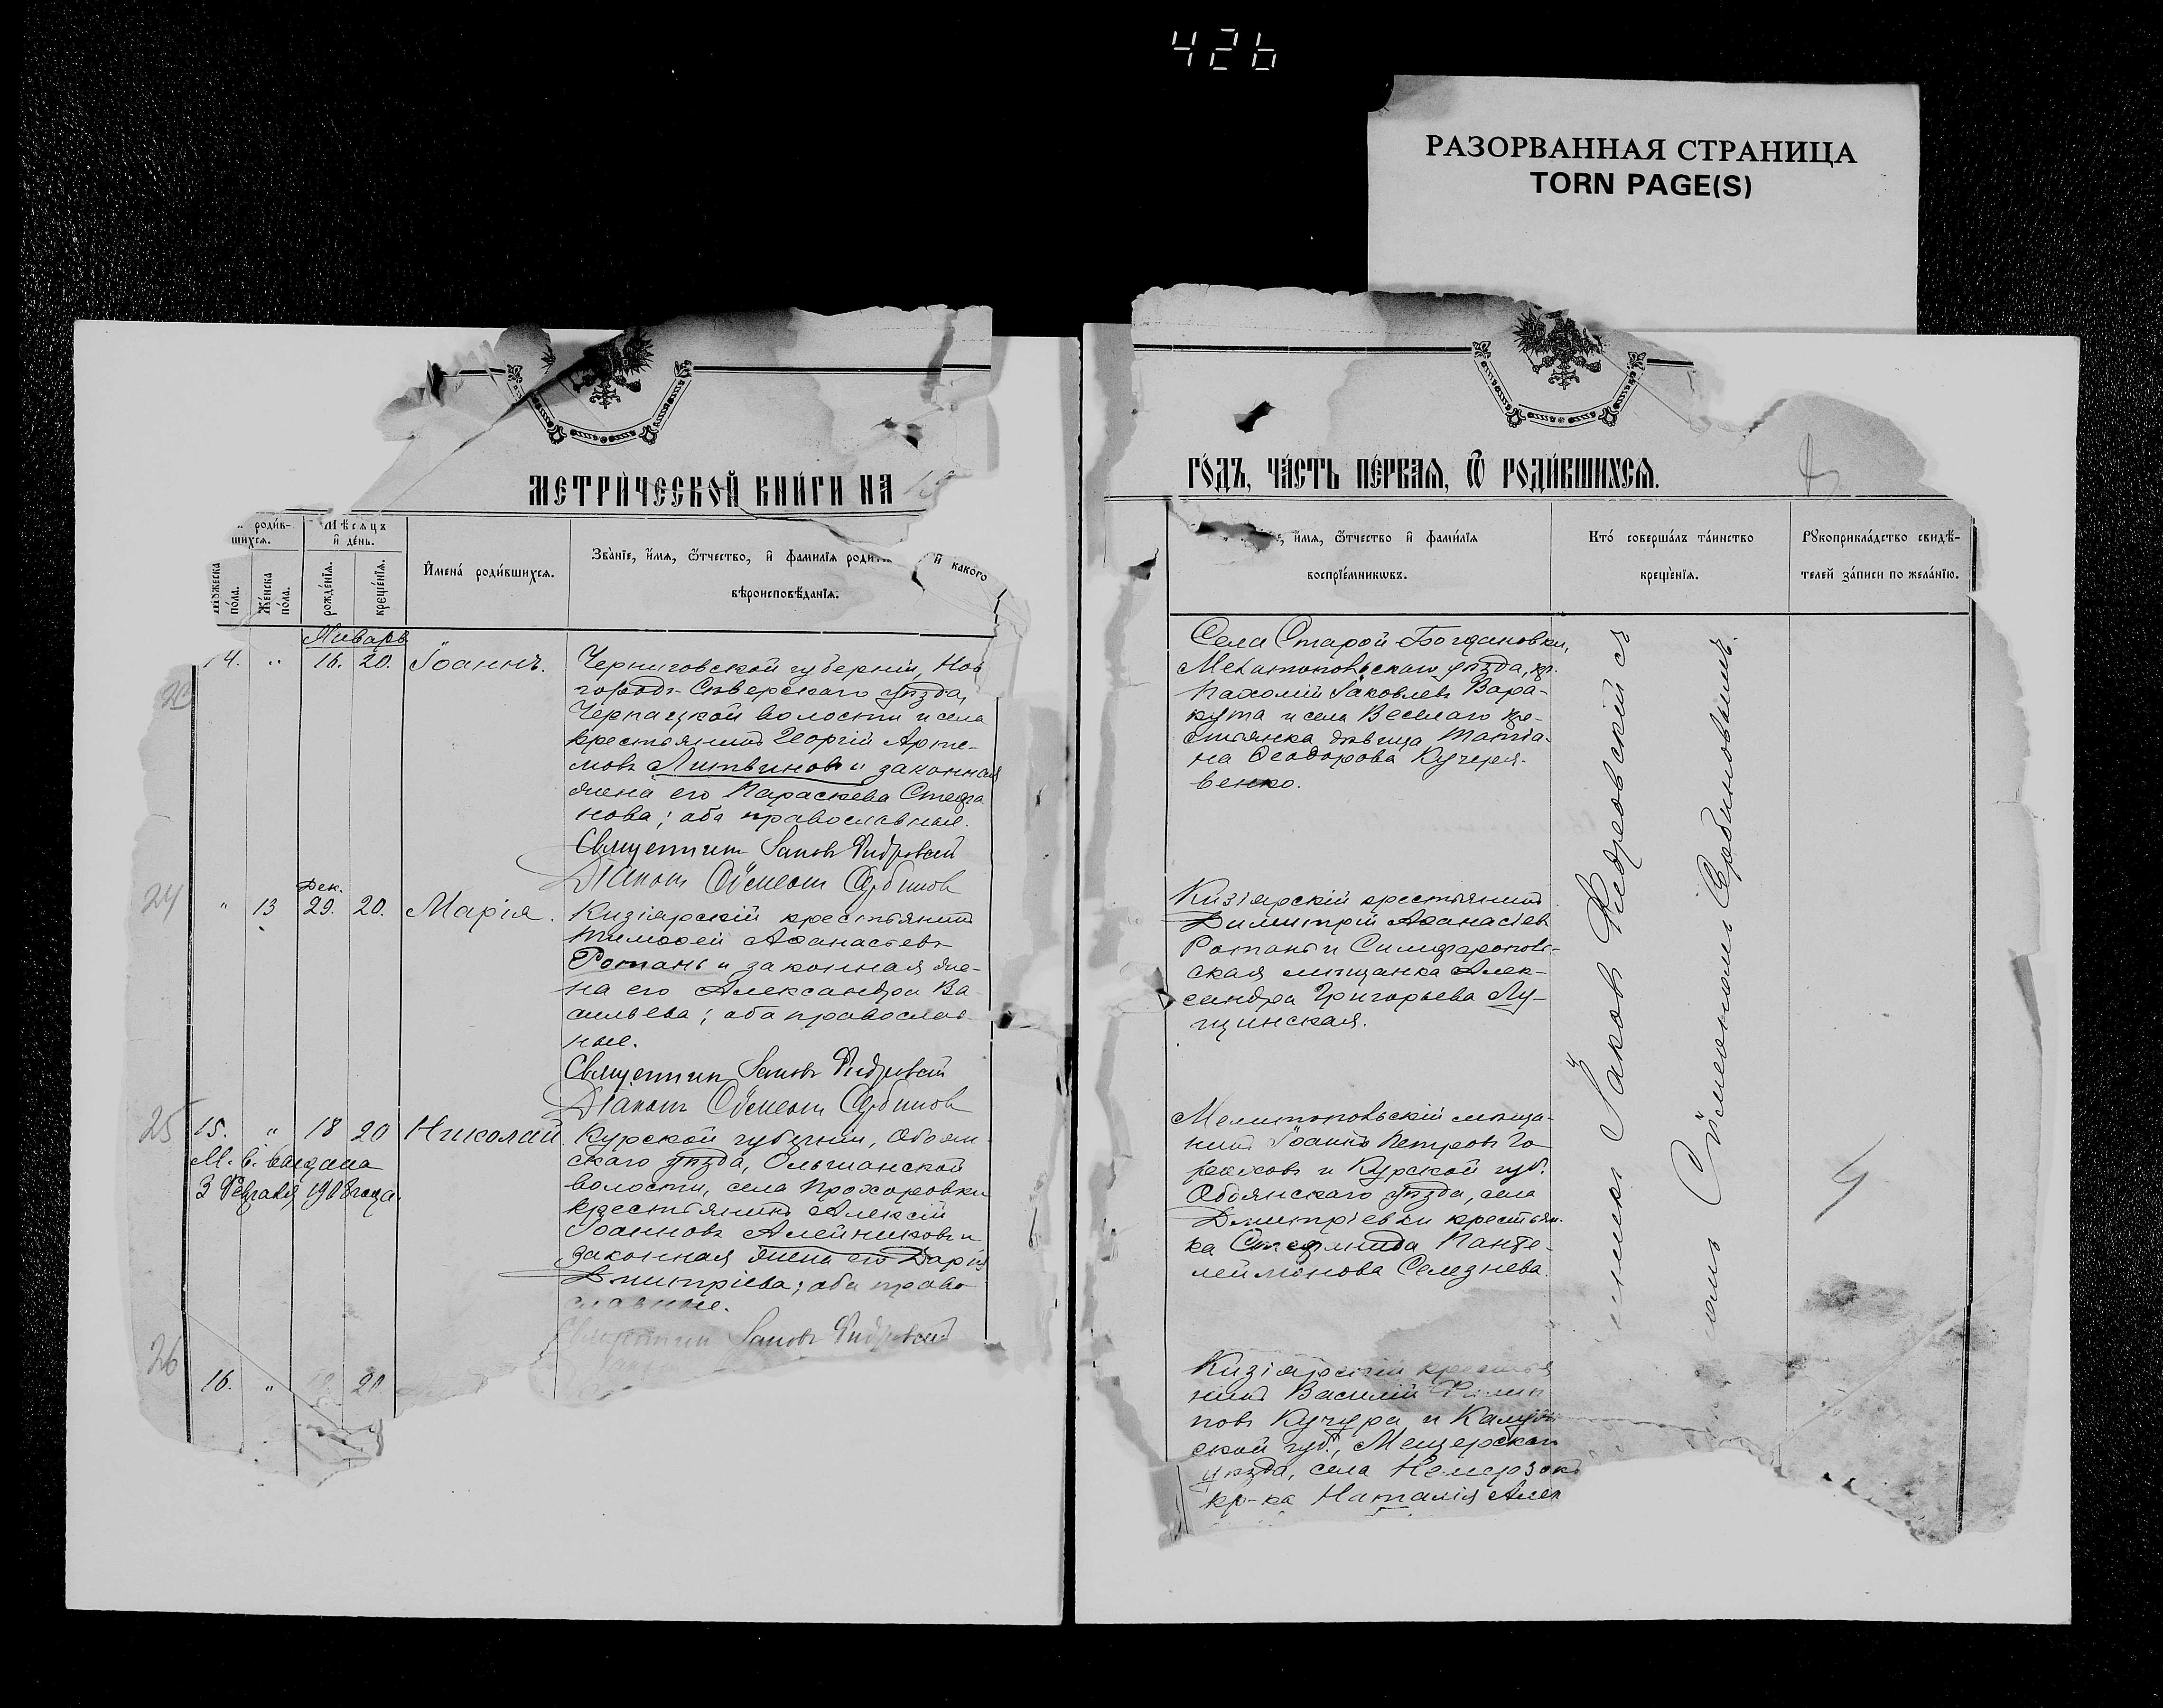 426
РАЗОРВАННАЯ СТРАНИЦА
TORN PAGE(S)
МЕТРИ́ЧЕСКОЙ КНИ́ГИ НА
роди́в-
шихсѧ.
Мѣсѧцъ
и҆ де́нь.
Мꙋжеска
по́ла.
Же́нска
по́ла.
рожде́нїѧ.
креще́нїѧ.
И҆мена̀ роди́вшихсѧ.
Зва́нїе, и҆́мѧ, ѻ҆́тчество, и҆ фами́лїѧ
и҆ какого
вѣроисповѣ́данїѧ.
Январь
14. " 16. 20. Іоаннъ.
Черниговской губерніи, Нов
городъ-Сѣверскаго уѣзда,
волости и села
крестьянинъ Георгій Арте-
мовъ Литвиновъ и законная
жена его Параскева Стефа
нова; оба православные.
Священникъ Іаковъ Ѳедровскій
Діаконъ Сѵмеонъ
24
Дек.
" 13 29. 20. Марія.
Кизіярскій крестьянинъ
Тимоѳей Аѳанасьевъ
Ротань и законная же-
на его Александра Ва
сильева; оба православ
ные.
Священникъ Іаковъ Ѳедровскій
Діаконъ Сѵмеонъ
25
15. " 18 20 Николай
М. в. выдана
3 Февраля 1908 года.
Курской губерніи, Обоян-
скаго уѣзда, Ольшанской
волости, села Прохоровки
крестьянинъ Алексій
Іоанновъ Алейниковъ и
законная жена его Дарія
Дмитріева; оба право
славные.
Священникъ Іаковъ Ѳедровскій
26
16. " 20
ГО́ДЪ, ЧА́СТЬ ПЕ́РВАѦ, Ѿ РОДИ́ВШИХСѦ.
и҆́мѧ, ѻ҆́тчество и҆ фами́лїѧ
воспрїе́мникѡвъ.
Кто̀ соверша́лъ та́инство
креще́нїѧ.
Рꙋкоприкла́дство свидѣ́-
телей за́писи по жела́нїю.
Села Старой-Богдановки,
Мелитопольскаго уѣзда, кр.
Пахомій Іаковлевъ Вара-
кута и села Веселаго кре-
стьянка дѣвица Татіа-
на Ѳеодорова Кучеря-
венко.
Кизіярскій крестьянинъ
Димитрій Аѳанасіевъ
Ротань и Симферополь-
ская мѣщанка Алек-
сандра Григорьева Лу-
щинская.
Мелитопольскій мѣща-
нинъ Іоаннъ Петровъ Го
роховъ и Курской губ.
Обоянскаго уѣзда, села
Дмитріевки крестьян.
ка Стефанида Панте-
леймонова Селезнева.
Кизіярскій крестья
нинъ Василій Филип
повъ Кучура, и Калуж
ской губ., Мещерскаго
уѣзда, села
кр-ка Наталія Алек
Іаковъ Ѳедровскій съ
Сѵмеономъ